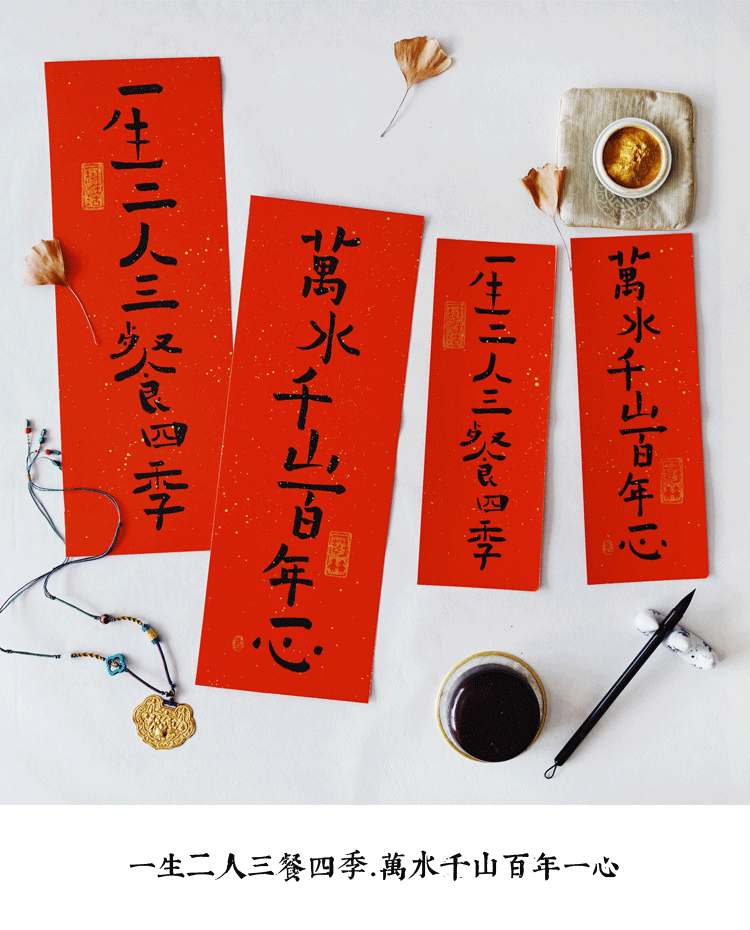 一生二人三餐四季
萬水千山一百年一心
一生二人三餐四季
萬水千山一百年一心
一生二人三餐四季.萬水千山百年一心